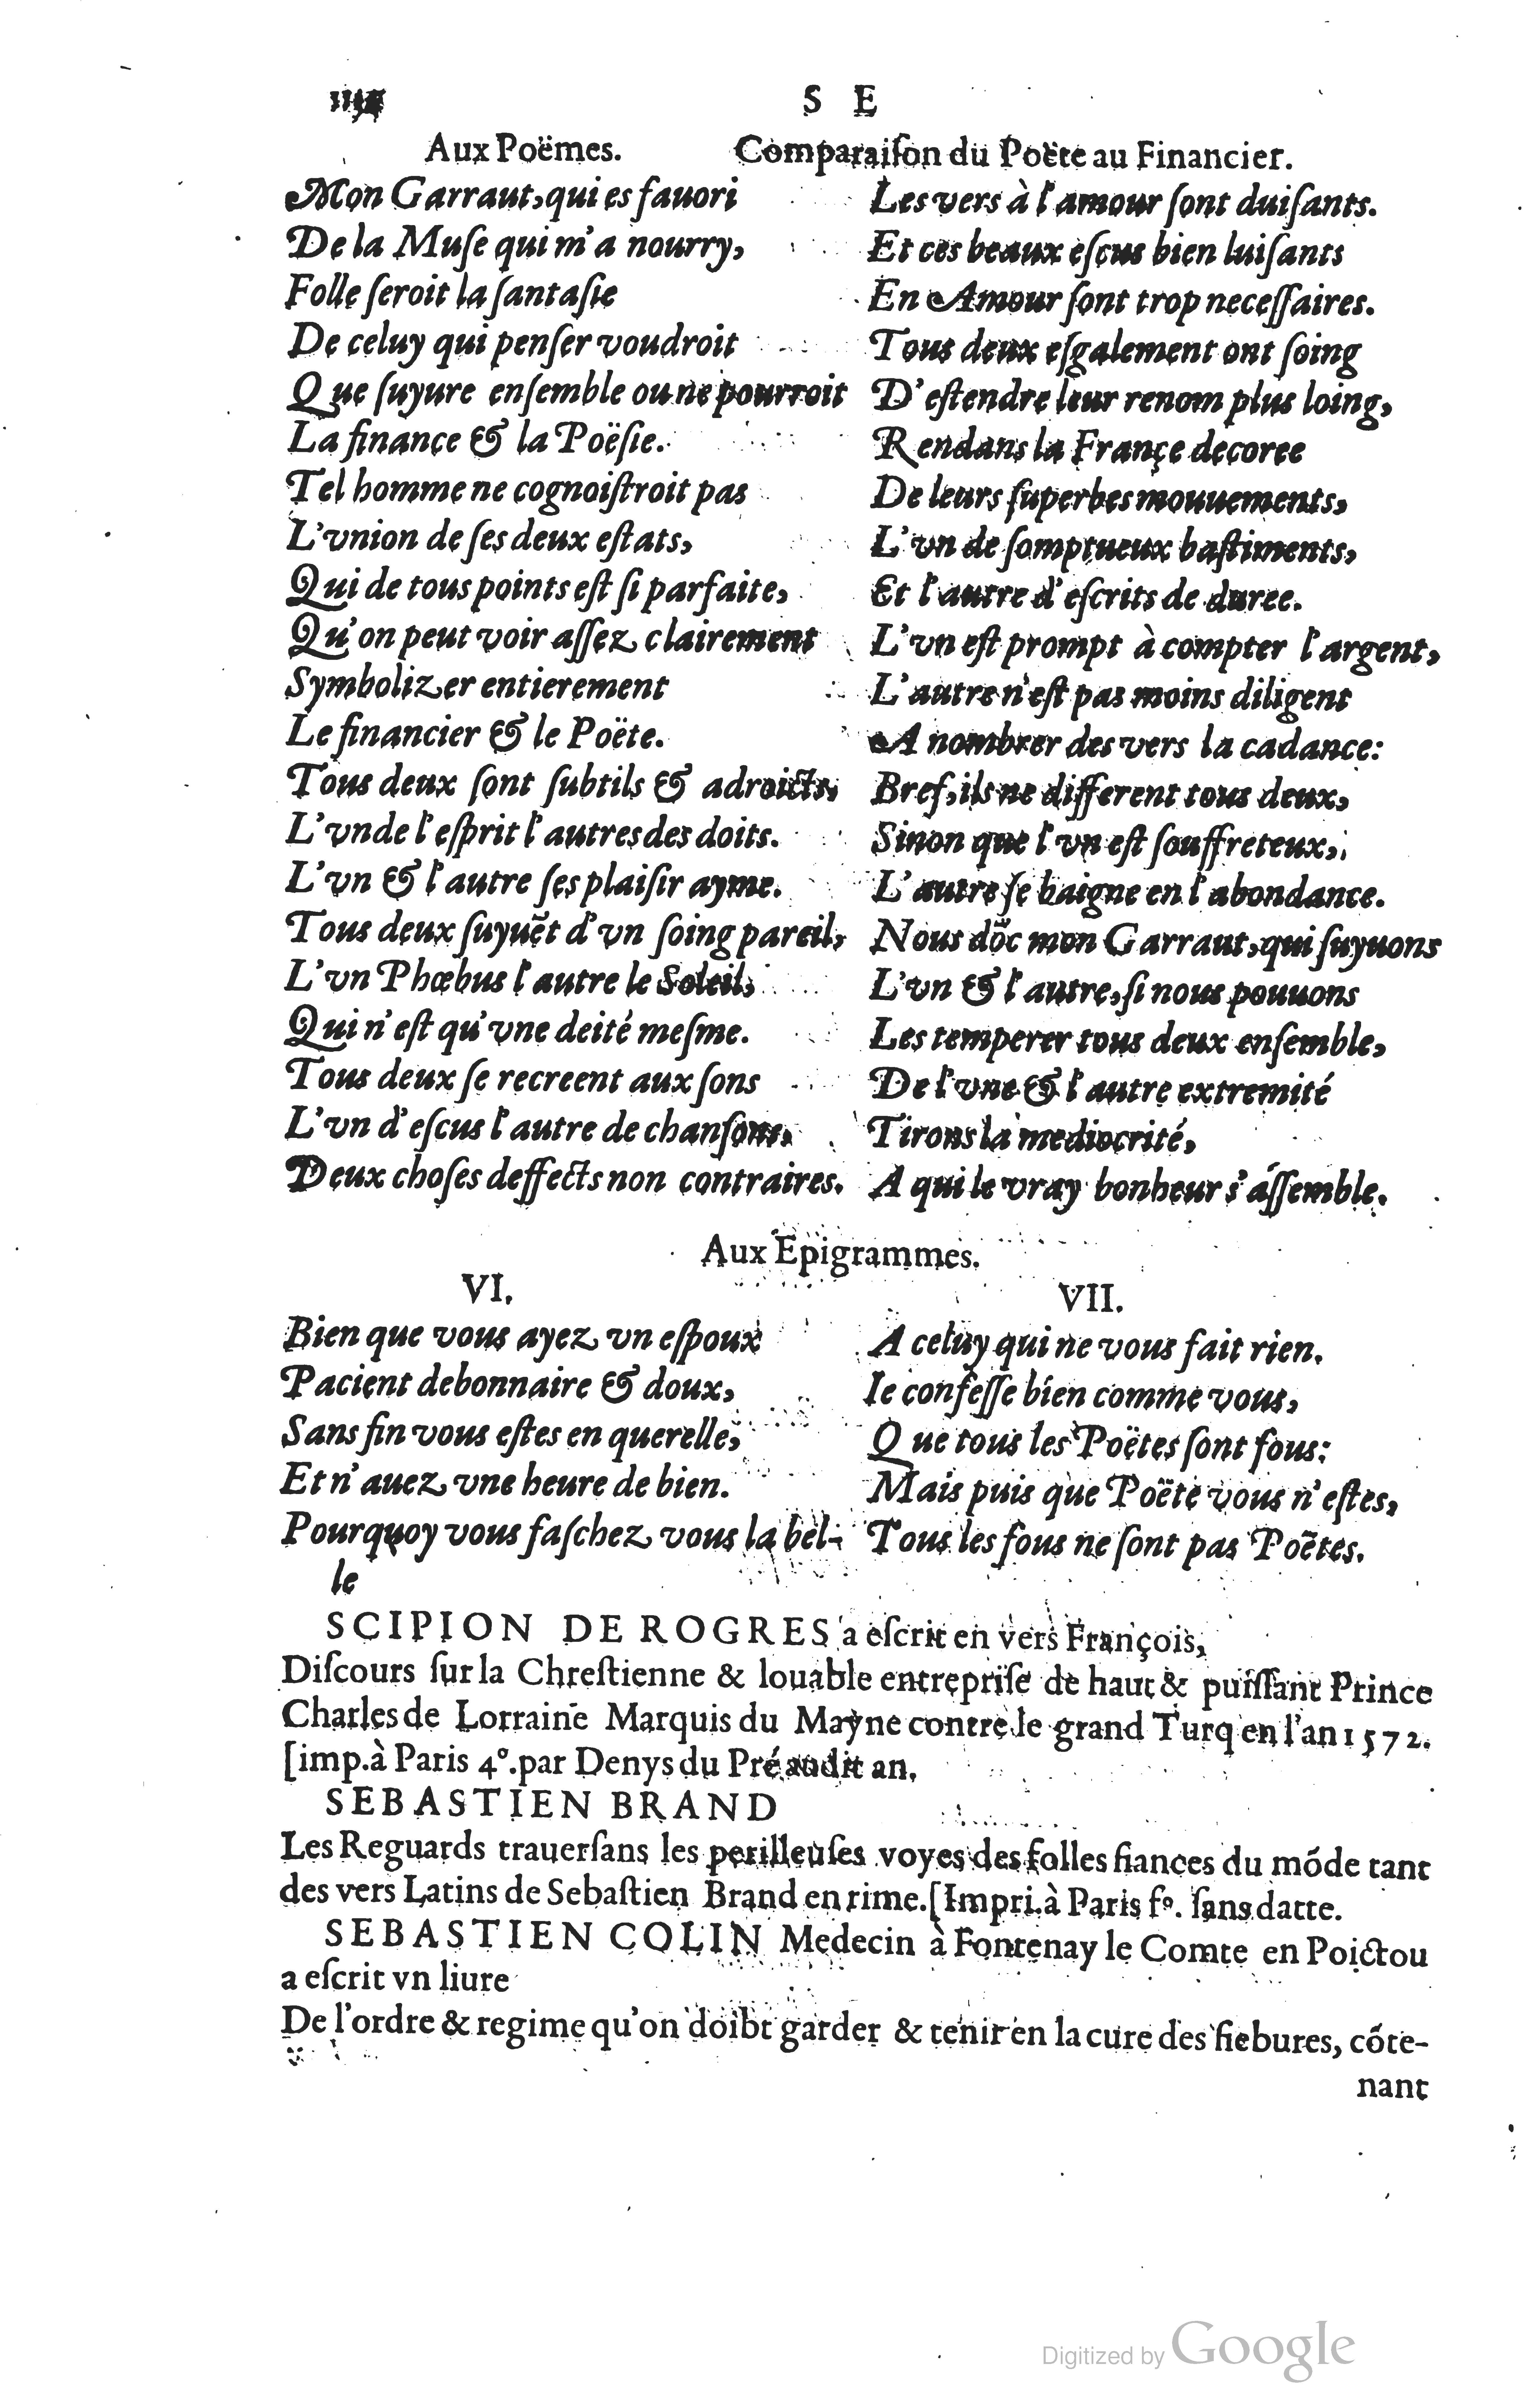 S E
Aux Poëmes.
Comparaiſon du Poëte au Financier.
Mon Garraut, qui es fauori
De la Muſe qui m'a nourry,
Folle ſeroit la fantaſie
De celuy qui penſer voudroit
Que ſuyure enſemble ou ne pourroit
La finance & la Poëſie.
Tel homme ne cognoiſtroit pas
L'vnion de ſes deux eſtats,
Qui de tous points eſt ſi parfaite,
Qu'on peut voir aſſez clairement
Symbolizer entierement
Le financier & le Poëte.
Tous deux ſont ſubtils & adroicts,
L'vn de l'eſprit l'autres des doits.
L'vn & l'autre ſes plaiſir ayme.
Tous deux ſuyuẽt d'vn ſoing pareil,
L'vn Phœbus l'autre le Soleil,
Qui n'eſt qu'vne deité meſme.
Tous deux ſe recreent aux ſons
L'vn d'eſcus l'autre de chanſons,
Deux choſes deffects non contraires.
Les vers à l'amour ſont duiſants.
Et ces beaux eſcus bien luiſants
En Amour ſont trop neceſſaires.
Tous deux eſgalement ont ſoing
D'eſtendre leur renom plus loing,
Rendans la Françe decoree
De leurs ſuperbes mouuements,
L'vn de ſomptueux baſtiments,
Et l'autre d'eſcrits de duree.
L'vn eſt prompt à compter l'argent,
L'autre n'eſt pas moins diligent
A nombrer des vers la cadance:
Bref, ils ne different tous deux,
Sinon que l'vn eſt ſouffreteux,
L'autre ſe baigne en l'abondance.
Nous dõc mon Garraut, qui ſuyuons
L'vn & l'autre, ſi nous pouuons
Les temperer tous deux enſemble,
De l'vne & l'autre extremité
Tirons la mediocrité,
A qui le vray bonheur s'aſſemble.
Aux Epigrammes.
VI.
Bien que vous ayez vn eſpoux
Pacient debonnaire & doux,
Sans fin vous eſtes en querelle,
Et n'auez vne heure de bien.
Pourquoy vous faſchez vous la bel-
le
A celuy qui ne vous fait rien.
VII.
Ie confeſſe bien comme vous,
Que tous les Poëtes ſont fous:
Mais puis que Poëte vous n'eſtes,
Tous les fous ne ſont pas Poëtes.
SCIPION DE ROGRES a eſcrit en vers François,
Diſcours ſur la Chreſtienne & louable entrepriſe de haut & puiſſant Prince
Charles de Lorraine Marquis du Mayne contre le grand Turq en l'an 1572.
[imp. à Paris 4°. par Denys du Pré audit an.
SEBASTIEN BRAND
Les Reguards trauerſans les perilleuſes voyes des folles fiances du mõde tant
des vers Latins de Sebaſtien Brand en rime. [Impri. à Paris f°. ſans datte.
SEBASTIEN COLIN Medecin à Fontenay le Comte en Poictou
a eſcrit vn liure
De l'ordre & regime qu'on doibt garder & tenir en la cure des fiebures, cõte-
nant
Digitized by Google